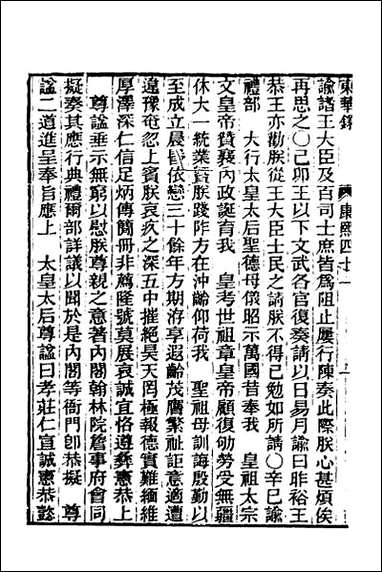 東華錄 康熙四十一
諭諸王大臣及百司士庶皆爲阻止屢行陳奏此際朕心甚煩俟
再思之〇己卯王以下文武各官復奏請以日易月諭曰昨裕王
恭王亦勸朕從王大臣士民之請朕不得已勉如所請〇辛巳諭
禮部 大行太皇太后聖德母儀昭示萬國昔奉我 皇祖太宗
文皇帝贊襄內政誕育我 皇考世祖章皇帝顧復劬勞受無疆
休大一統業曁朕踐阼方在沖齡仰荷我 聖祖母訓誨殷勤以
至成立晨昏依戀三十餘年方期洊享遐齡茂膺繁祉詎意適遭
違豫奄忽上賓朕哀疚之深五中摧絕昊天罔極報德實難緬維
厚澤深仁信足炳傳簡冊非薦隆號莫展哀誠宜恪遵彝憲恭上
尊諡垂示無窮以慰朕尊親之意著內閣翰林院詹事府會同
擬奏其應行典禮爾部詳議以聞於是內閣等衙門卽恭擬 尊
諡二道進呈奉旨應上 太皇太后尊諡曰孝莊仁宣誠憲恭懿